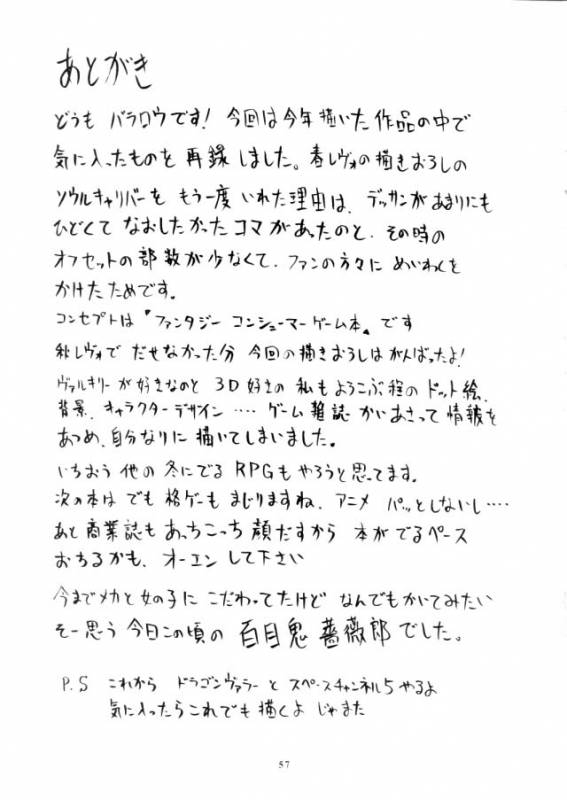 あとがき
どうも バラロウです! 今回は今年描いた作品の中で
気に入ったものを 再録しました。春レヴォの描きおろしの
ソウルキャリバーを もう一度 いれた理由は、デッサンがあまりにも
ひどくて なおしたかったコマがあったのと、その時の
オフセットの部数が少なくて、ファンの方々に めいわくを
かけたためです。
コンセプトは 『ファンタジー コンシューマーゲーム本』 です
秋レヴォで だせなかった分 今回の描きおろしはがんばったよ!
ヴァルキリーが好きなのと 3D好きの 私もようこぶ程の ドット絵、
背景、キャラクターデザイン ‥‥ ゲーム雑誌 かいあさって 情報を
あつめ、自分なりに 描いてしまいました。
いちおう 他の 冬にでる RPGも やろうと思ってます。
次の本は でも 格ゲーも まじりますね、アニメ パッとしないし‥‥
あと 商業誌も あっちこっち 顔だすから 本がでるペース
おちるかも、オーエン して下さい
今までメカと女の子に こだわってたけど なんでもかいてみたい
そー思う 今日この頃の 百目鬼 薔薇郎でした。
P.S これから ドラゴンヴァラーと スペースチャンネル5やるよ
気に入ったらこれでも描くよ じゃまた
57